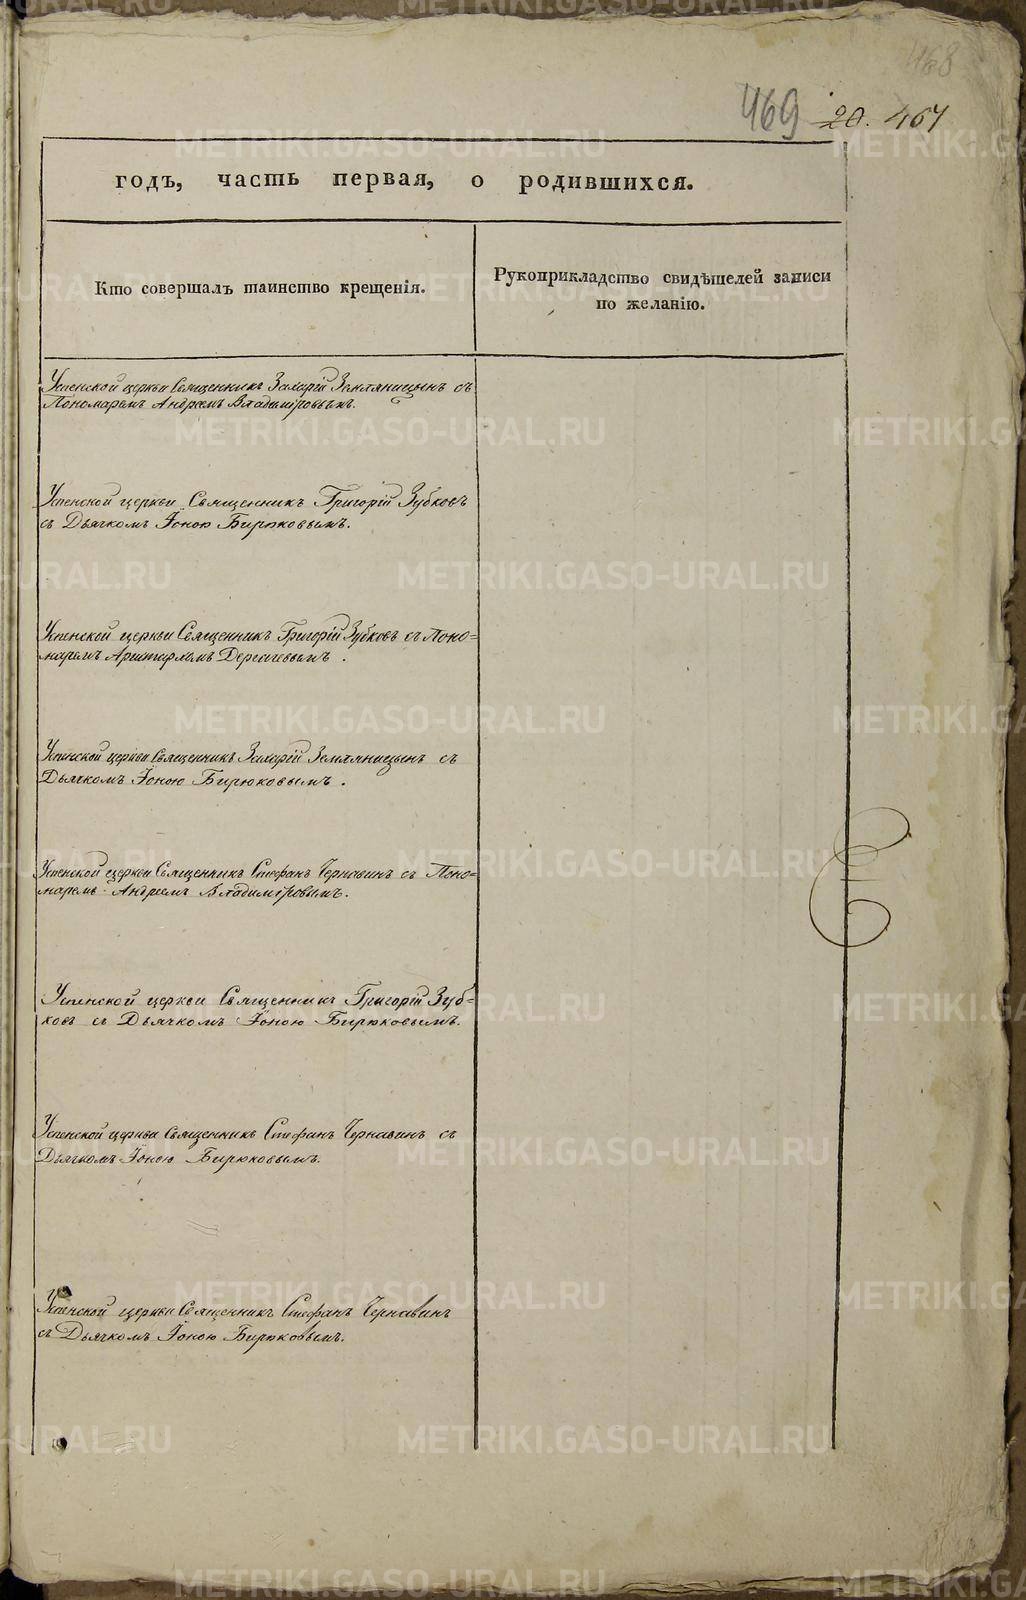 468
469 20. 467
годъ, часть первая, о родившихся.
Кто совершалъ таинство крещенія.
Рукоприкладство свидѣтелей записи
по желанію.
Успенской церкви Священникъ Захарій Земляницынъ съ
Пономаремъ Андреемъ Владиміровымъ.
Успенской церкви Священникъ Григорій Зубковъ
съ Дьячкомъ Іоною Бирюковымъ.
Успенской церкви Священникъ Григорій Зубковъ съ Поно=
маремъ
Успенской церкви Священникъ Захарій Земляницынъ съ
Дьячкомъ Іоною Бирюковымъ.
Успенской церкви Священникъ Стефанъ Чернавинъ съ Поно=
маремъ Андреемъ Владиміровымъ.
Успенской церкви Священникъ Григорій Зуб=
ковъ съ Дьячкомъ Іоною Бирюковымъ.
Успенской церкви Священникъ Стефанъ Чернавинъ съ
Дьячкомъ Іоною Бирюковымъ.
Успенской церкви Священникъ Стефанъ Чернавинъ
съ Дьячкомъ Іоною Бирюковымъ.
METRIKI.GASO-URAL.RU